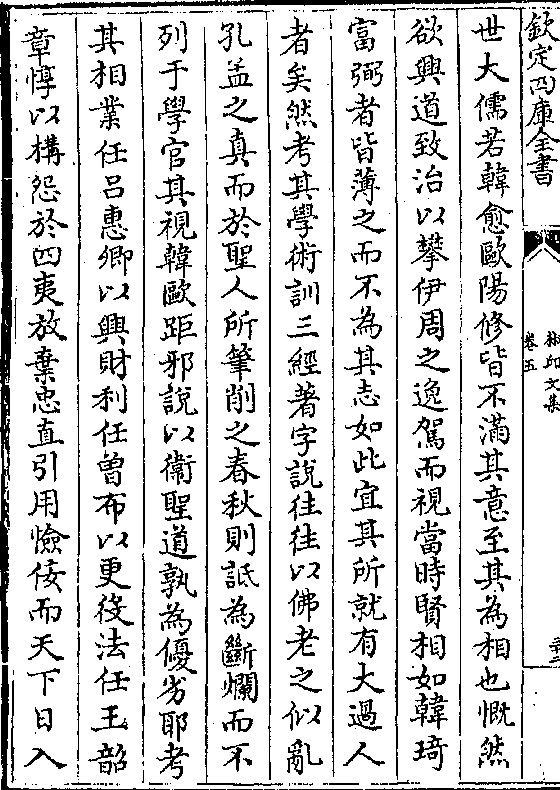 欽定四庫全書
卷五
世大儒若韓愈歐陽修皆不滿其意至其為相也慨然
欲興道致治以攀伊周之逸駕而視當時賢相如韓琦
富弼者皆薄之而不為其志如此宜其所就有大過人
者矣然考其學術訓三經著字說往往以佛老之似亂
孔孟之真而於聖人所筆削之春秋則詆為斷爛而不
列于學官其視韓歐距邪說以衛聖道孰為優劣耶考
其相業任呂惠卿以興財利任曾布以更役法任王韶
章惇以構怨於四夷放棄忠直引用憸佞而天下日入